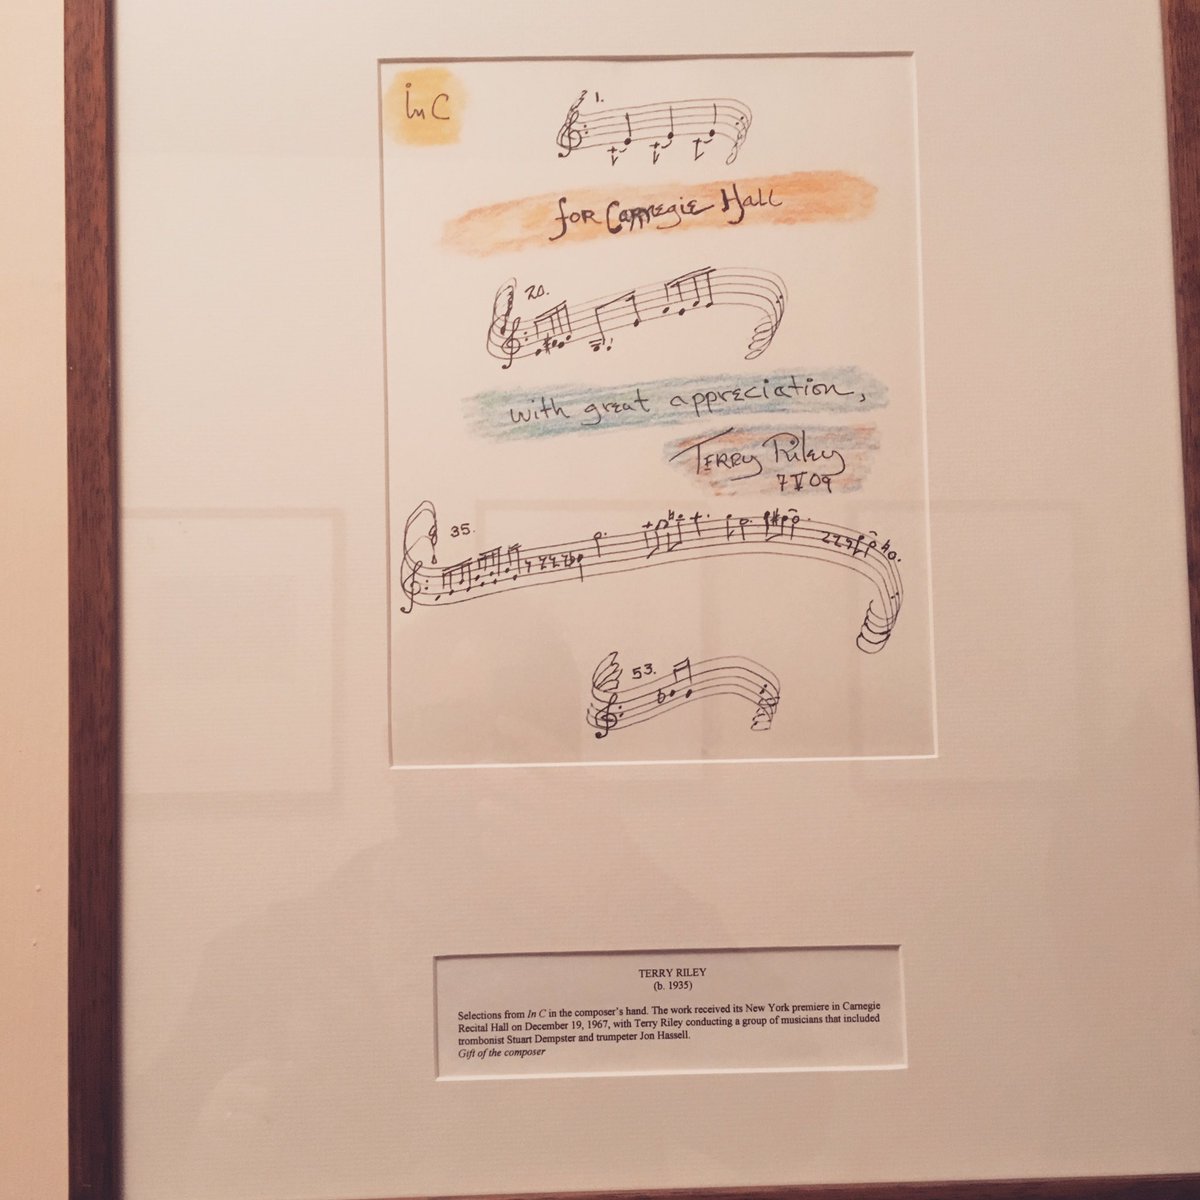 In C
1.
for Carnegie Hall
20.
with great appreciation,
Terry Riley
7 V 09
35.
53.
TERRY RILEY
(b. 1935)
Selections from In C in the composer's hand. The work received its New York premiere in Carnegie
Recital Hall on December 19, 1967, with Terry Riley conducting a group of musicians that included
trombonist Stuart Dempster and trumpeter Jon Hassell.
Gift of the composer